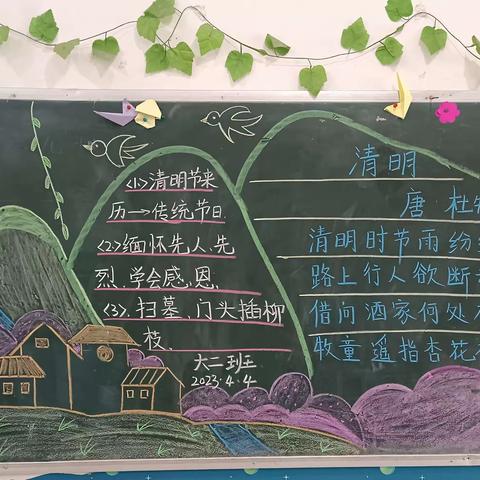 <1>清明节来
历→传统节日
<2>缅怀先人、先
烈、学会感恩、
<3>、扫墓、门头插柳
枝、
大二班
2023.4.4
清明
唐 杜牧
清明时节雨纷
路上行人欲断
借问酒家何处
牧童遥指杏花